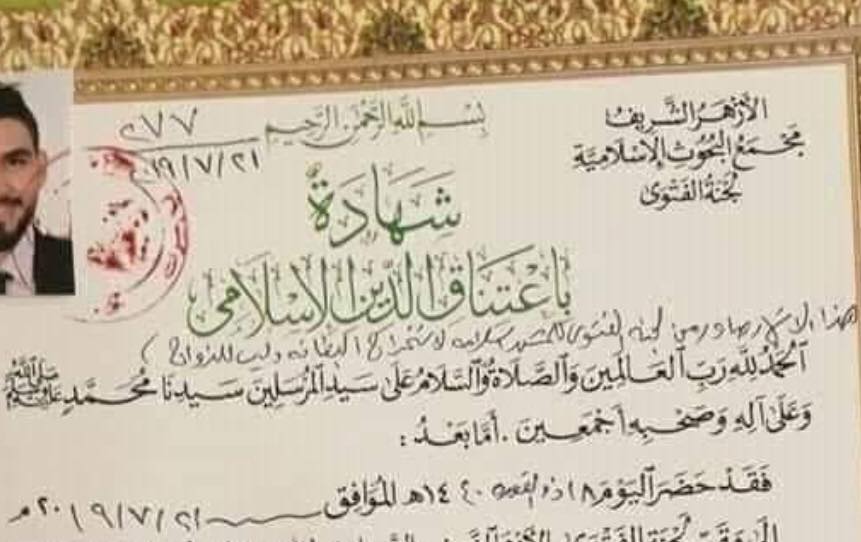 الأزهر الشريف
مجمع البحوث الإسلامية
لجنة الفتوى
بسم الله الرحمن الرحيم
٢٧٧
٢٠١٩/٧/٢١
شهادة
باعتناق الدين الإسلامى
هذا الإشهار صادر من لجنة الفتوى لاستخراج البطاقة وليست للزواج
الحمد لله رب العالمين والصلاة والسلام على سيد المرسلين سيدنا محمد صلى الله عليه وسلم
وعلى آله وصحبه أجمعين . أما بعد :
فقد حضر اليوم ١٨ ذو القعدة ١٤٤٠ هـ الموافق ٢٠١٩/٧/٢١ م